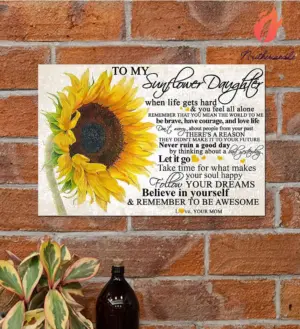 TO MY
Sunflower Daughter
when life gets hard
& you feel all alone
REMEMBER THAT YOU MEAN THE WORLD TO ME
be brave, have courage, and love life
Don't worry about people from your past
THERE'S A REASON
THEY DIDN'T MAKE IT TO YOUR FUTURE
Never ruin a good day
by thinking about a bad yesterday
Let it go
Take time for what makes
your soul happy
Follow YOUR DREAMS
Believe in yourself
& REMEMBER TO BE AWESOME
LOVE, YOUR MOM